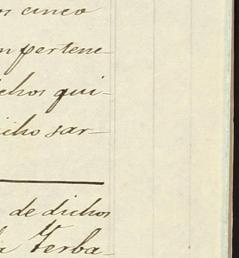 os cinco
n pertene
chos qui-
icho sar-
de dichos
la Yerba-